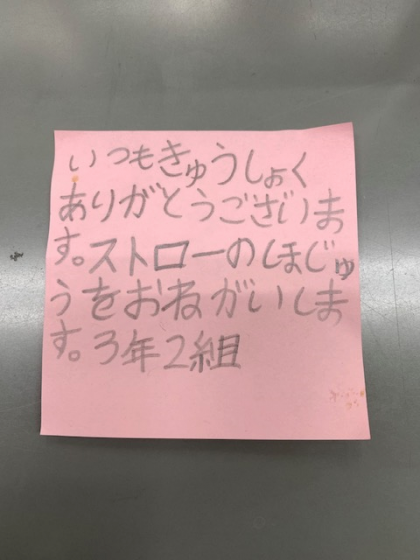 いつもきゅうしょく
ありがとうございま
す。ストローのほじゅ
うをおねがいしま
す。3年2組